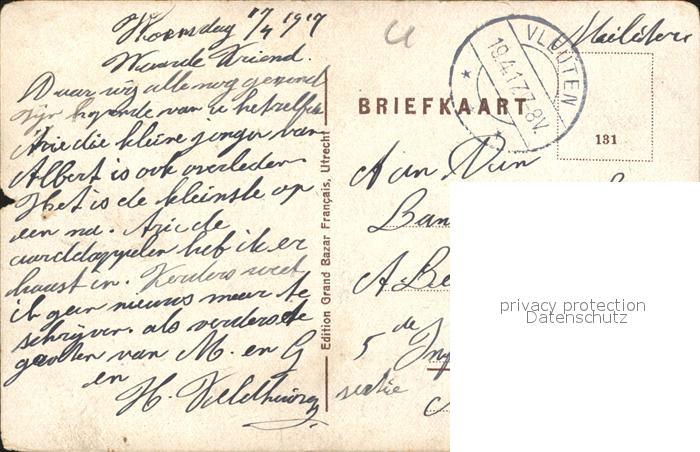 Woensdag 17/4 1917
Waarde Vriend.
Daar wij alle nog gezond
zijn hopende van u hetzelfde
Arie die kleine jongen van
Albert is ook overleden
Het is de kleinste op
een na. Arie de
aarddappelen heb ik er
haast in. Verders weet
ik geen nieuws meer te
schrijven. als verders de
groeten van M. en G
en
H. Veldhuizen
Edition Grand Bazar Français, Utrecht
Militair
VLEUTEN
19.4.17.7-8V.
BRIEFKAART
131
Aan
A
5 de
sectie
privacy protection
Datenschutz